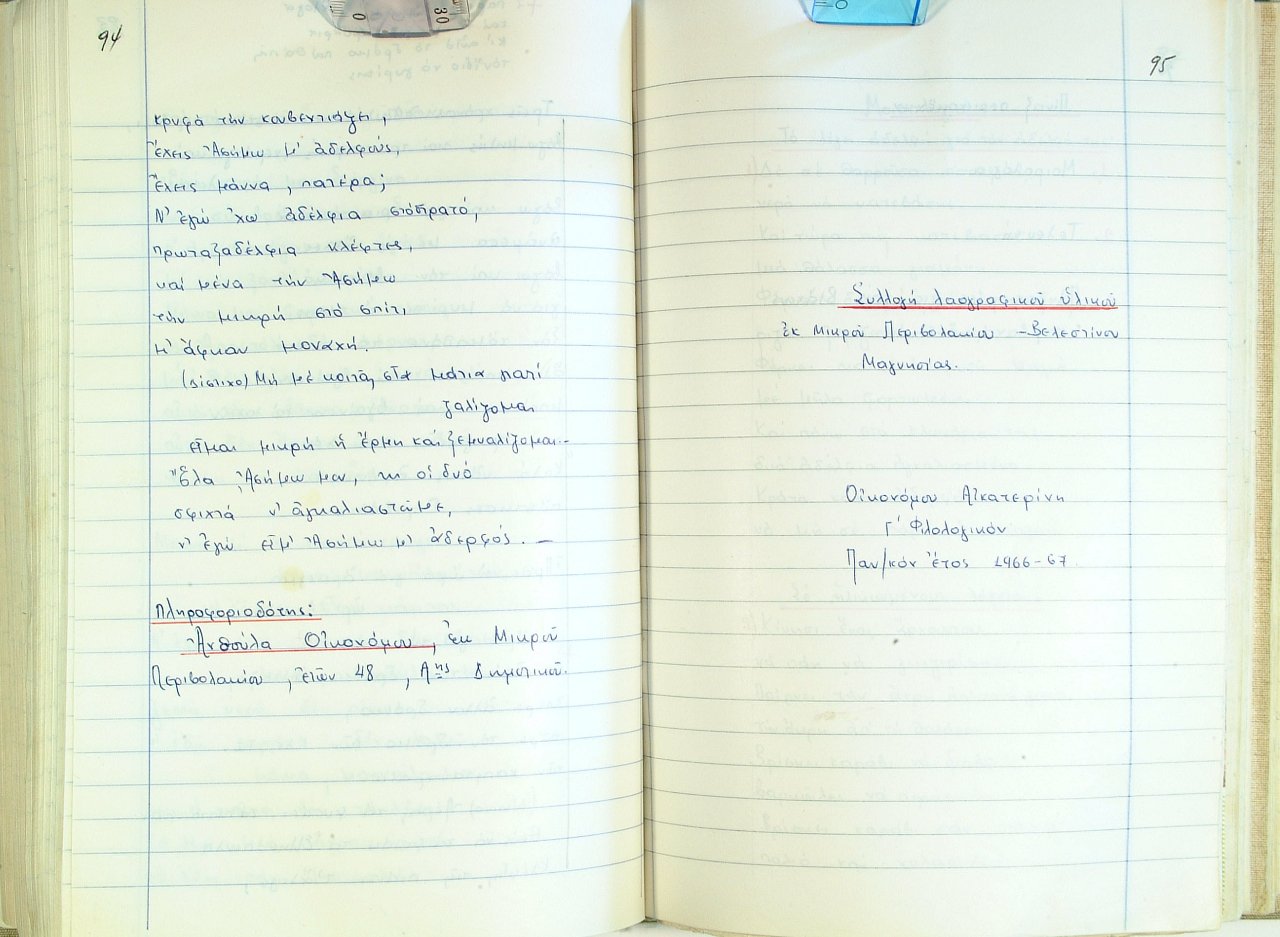 94
κρυφά τὴν κουβεντιάζει,
Ἔχεις Ἀσήμω μ' ἀδελφούς,
Ἔχεις μάννα, πατέρα;
Ν' ἐγώ 'χω ἀδέλφια στό στρατό,
πρωταξαδέλφια κλέφτες,
καί μένα τὴν Ἀσήμω
τὴν μικρή στό σπίτι
μ' ἄφκαν μοναχή.
(Δίστιχο) Μή μέ κοιτᾶς στα μάτια γιατί
ζαλίζομαι
εἶμαι μικρή ἡ ἔρμη καί ξεμυαλίζομαι.-
Ἔλα, Ἀσήμω μου, κι οἱ δυό
σφιχτά ν' ἀγκαλιαστῶμε,
ν' ἐγώ εἶμ' Ἀσήμω μ' ἀδερφός. —
Πληροφοριοδότης:
Ἀνθούλα Οἰκονόμου, ἐκ Μικροῦ
Περιβολακίου, ἐτῶν 48, Αης Δημοτικοῦ.
95
Συλλογή λαογραφικοῦ ὑλικοῦ
ἐκ Μικροῦ Περιβολακίου - Βελεστίνου
Μαγνησίας.
Οἰκονόμου Αἰκατερίνη
Γ' Φιλολογικόν
Παν/κόν ἔτος 1966-67.